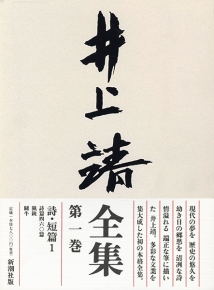 井上靖
全集
第一巻
現代の夢を 歴史の悠久を
幼き日の郷愁を 清冽な詩
情溢れる 端正な筆に描い
た 井上靖。多彩な文業を
集大成した初の本格全集。
詩・短篇1
詩篇四六〇篇
猟銃
闘牛
新潮社版